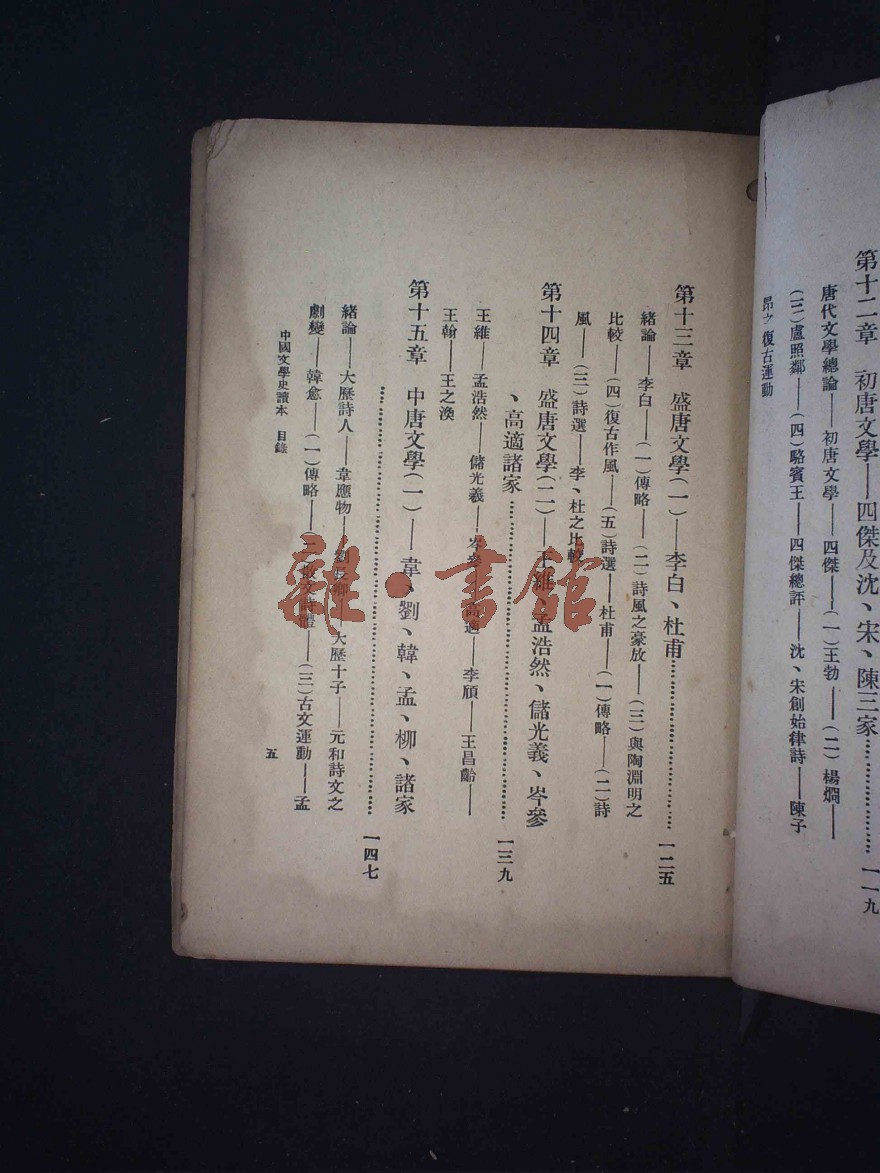 第十二章　初唐文學——四傑及沈、宋、陳三家………一一九
唐代文學總論——初唐文學——四傑——(一)王勃——(二)楊烱——
(三)盧照鄰——(四)駱賓王——四傑總評——沈、宋創始律詩——陳子
昂之復古運動
第十三章　盛唐文學(一)——李白、杜甫………一二五
緒論——李白——(一)傳略——(二)詩風之豪放——(三)與陶淵明之
比較——(四)復古作風——(五)詩選——杜甫——(一)傳略——(二)詩
風——(三)詩選——李、杜之比較
第十四章　盛唐文學(二)——王維、孟浩然、儲光義、岑參
、高適諸家………一三九
王維——孟浩然——儲光義——岑參——高適——李頎——王昌齡——
王翰——王之渙
第十五章　中唐文學(一)——韋、劉、韓、孟、柳、諸家
………一四七
緒論——大歷詩人——韋應物——劉長卿——大歷十子——元和詩文之
劇變——韓愈——(一)傳略——(二)散文詩體——(三)古文運動——孟
中國文學史讀本　目錄
五
雜·書館